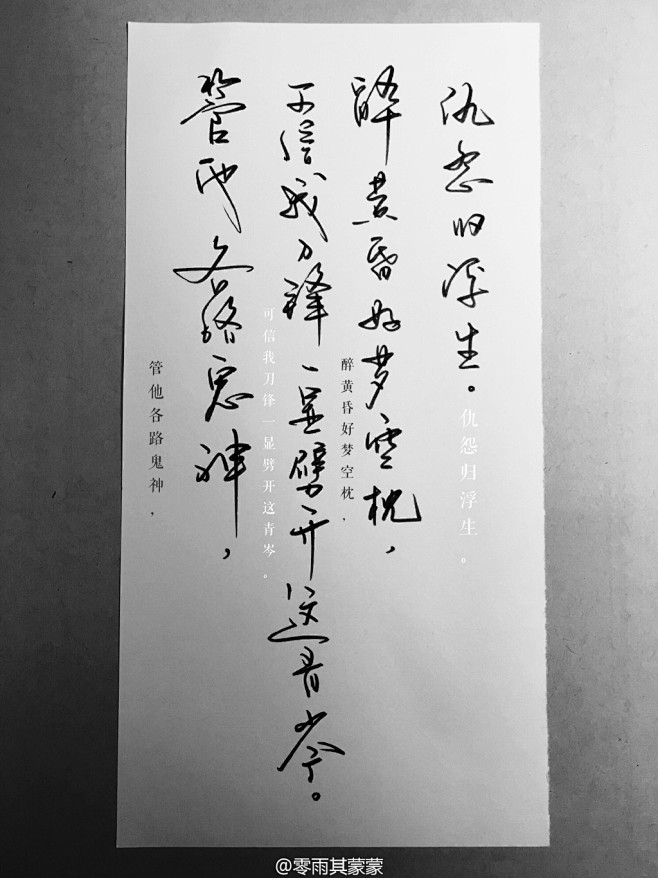 管他各路鬼神，
管他各路鬼神，
可信我刀锋一显劈开这青岑。
可信我刀锋一显劈开这青岑。
醉黄昏好梦空枕，
醉黄昏好梦空枕，
仇怨归浮生。
仇怨归浮生。
@零雨其蒙蒙